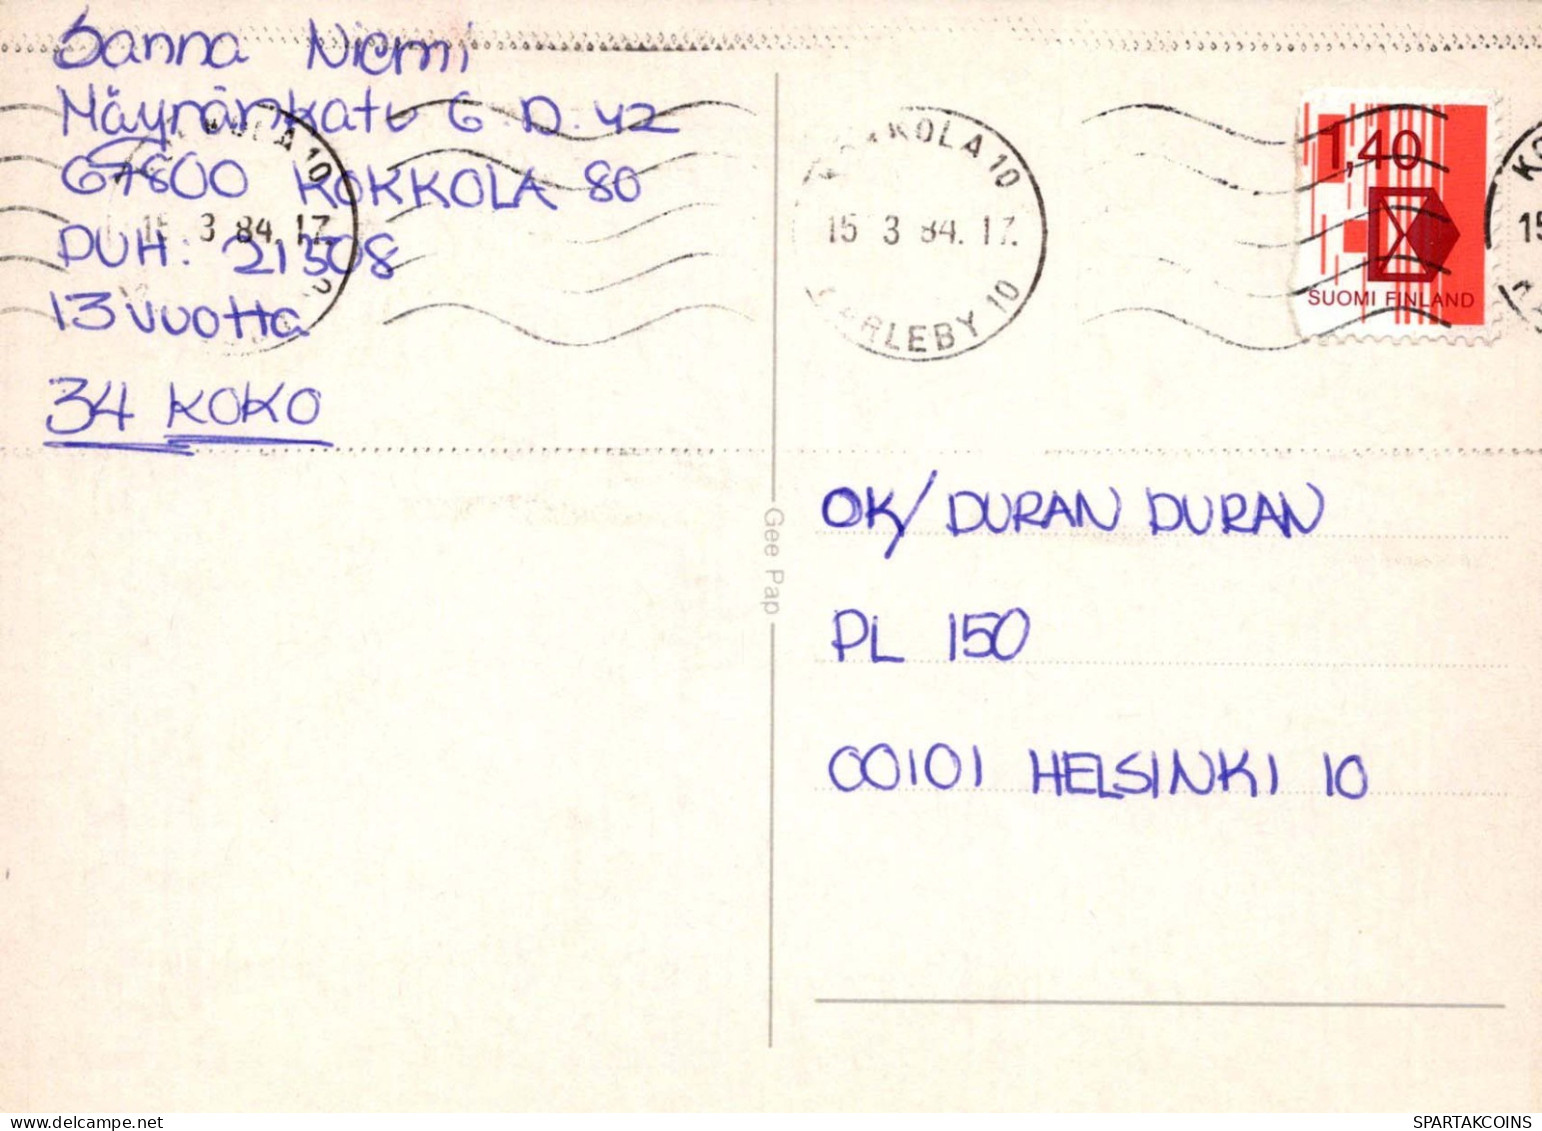 Sanna Niemi
Mäynänkatu 6 D. 42
67800 KOKKOLA 80
PUH: 21308
13 vuotta
34 KOKO
KOLA 10
15 3 84. 17.
KOKKOLA 10
15 3 84. 17.
KARLEBY 10
1,40
SUOMI FINLAND
KO
15
Gee Pap
OK/ DURAN DURAN
PL 150
00101 HELSINKI 10
https://www.delcampe.net
SPARTAKCOINS